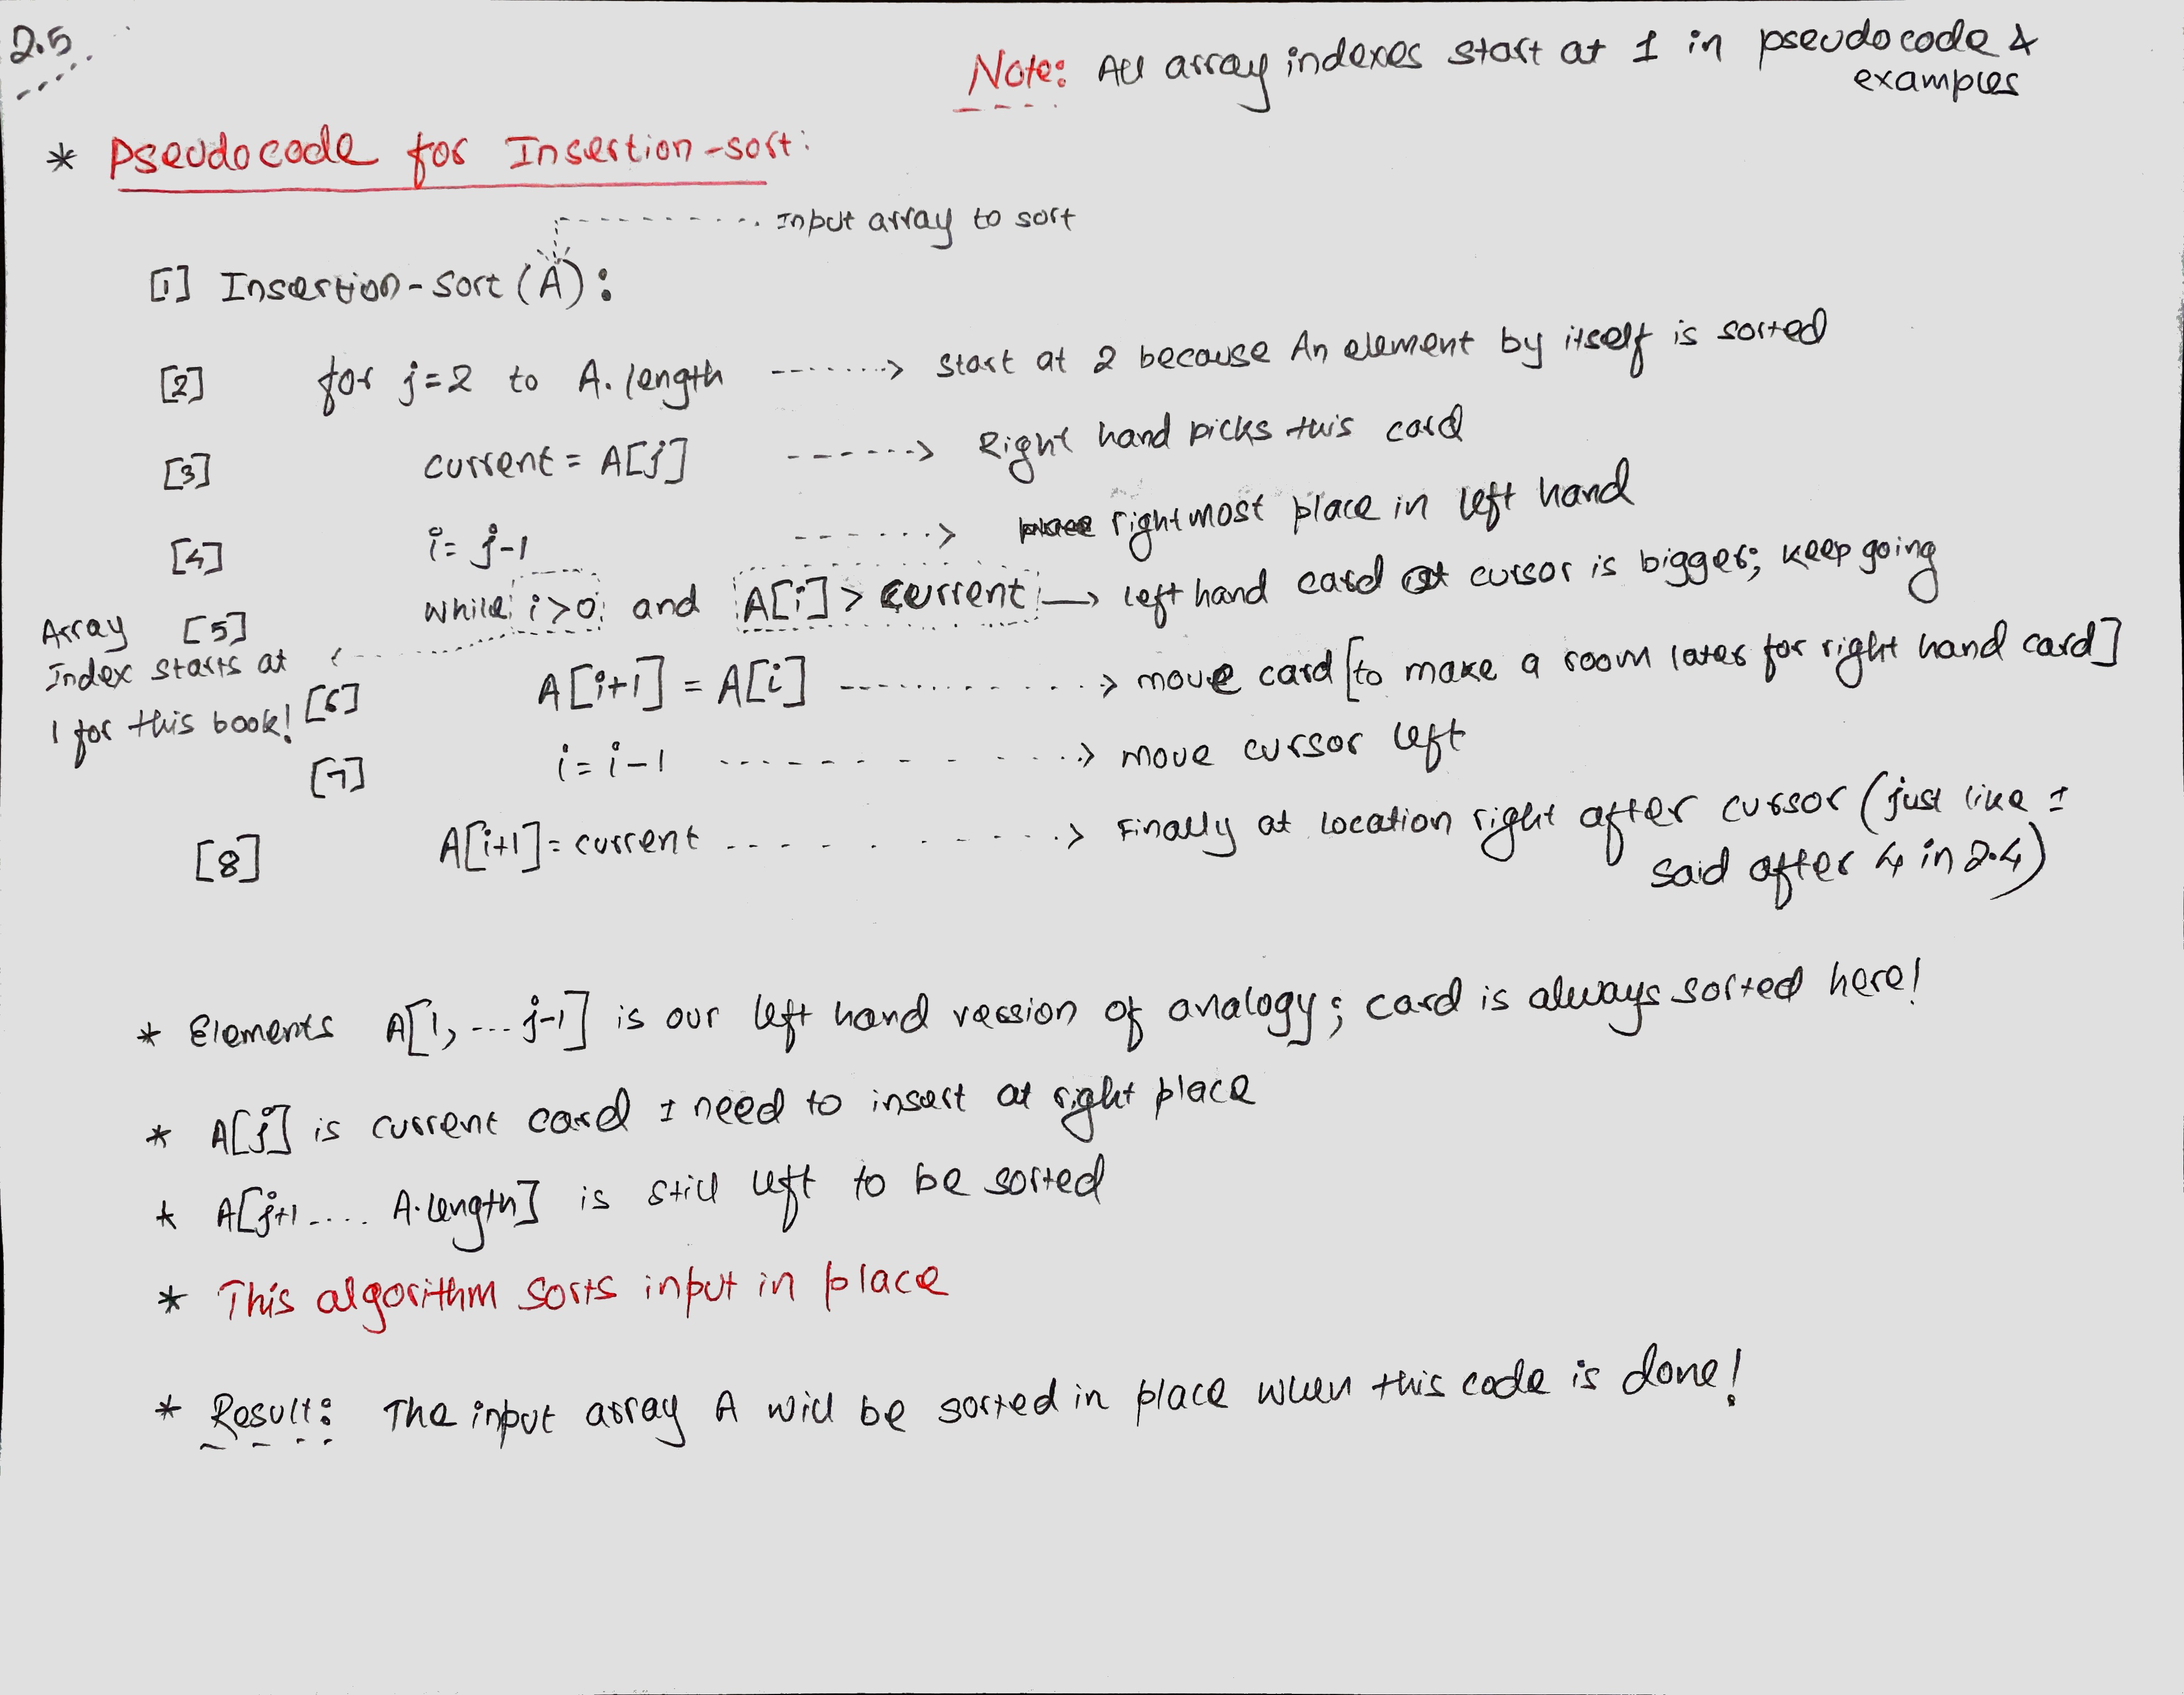 2.5
Note: All array indexes start at 1 in pseudocode &
examples
* Pseudocode for Insertion-sort:
Input array to sort
[1] Insertion-sort (A):
[2] for j=2 to A.length -------> start at 2 because An element by itself is sorted
[3] current = A[j] ------> Right hand picks this card
[4] i= j-1 ------> rightmost place in left hand
[5] while i>0 and A[i] > current —> left hand card at cursor is bigger; keep going
Array
Index starts at
1 for this book!
[6] A[i+1] = A[i] ------------> move card [to make a room later for right hand card]
[7] i= i-1 ------------> move cursor left
[8] A[i+1]= current ------------> Finally at location right after cursor (just like I
said after 4 in 2.4)
* Elements A[1, ... j-1] is our left hand version of analogy; card is always sorted here!
* A[j] is current card I need to insert at right place
* A[j+1 .... A.length] is still left to be sorted
* This algorithm sorts input in place
* Result: The input array A will be sorted in place when this code is done!